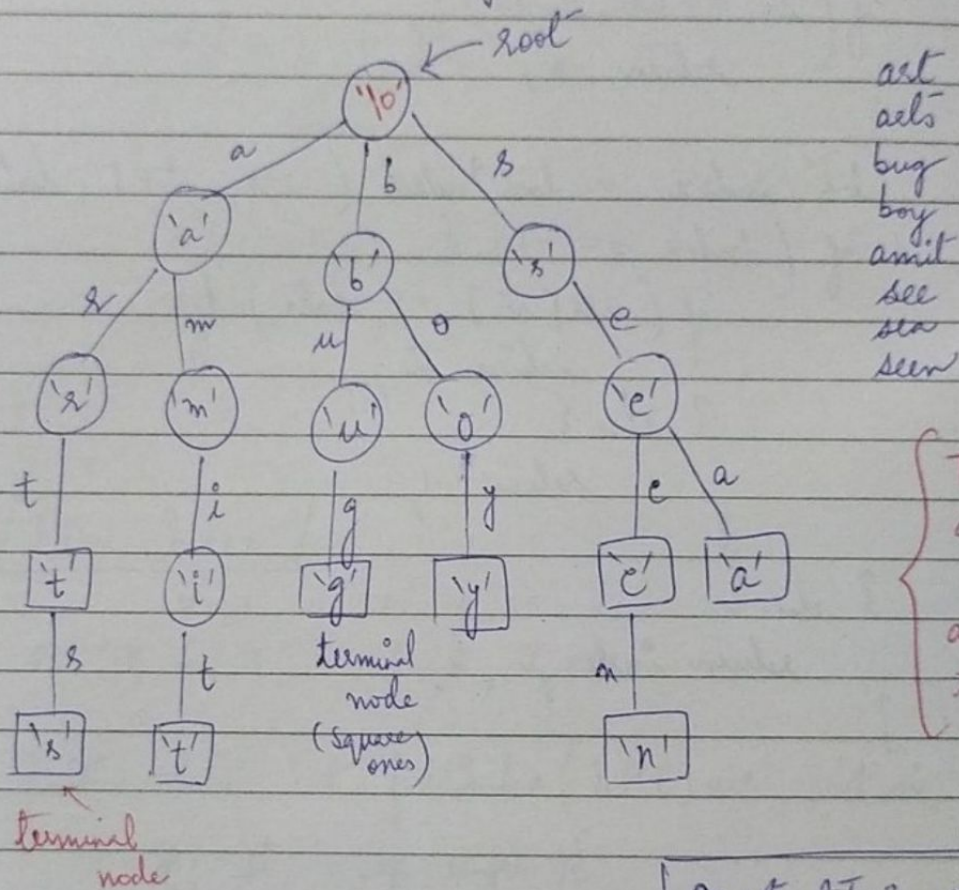 root
'\0'
a b s
'a' 'b' 's'
r m u o e
'r' 'm' 'u' 'o' 'e'
t i g y e a
't' 'i' 'g' 'y' 'e' 'a'
s t n
's' 't' 'n'
terminal
node
(square
ones)
terminal
node
art
arts
bug
boy
amit
see
sea
seen